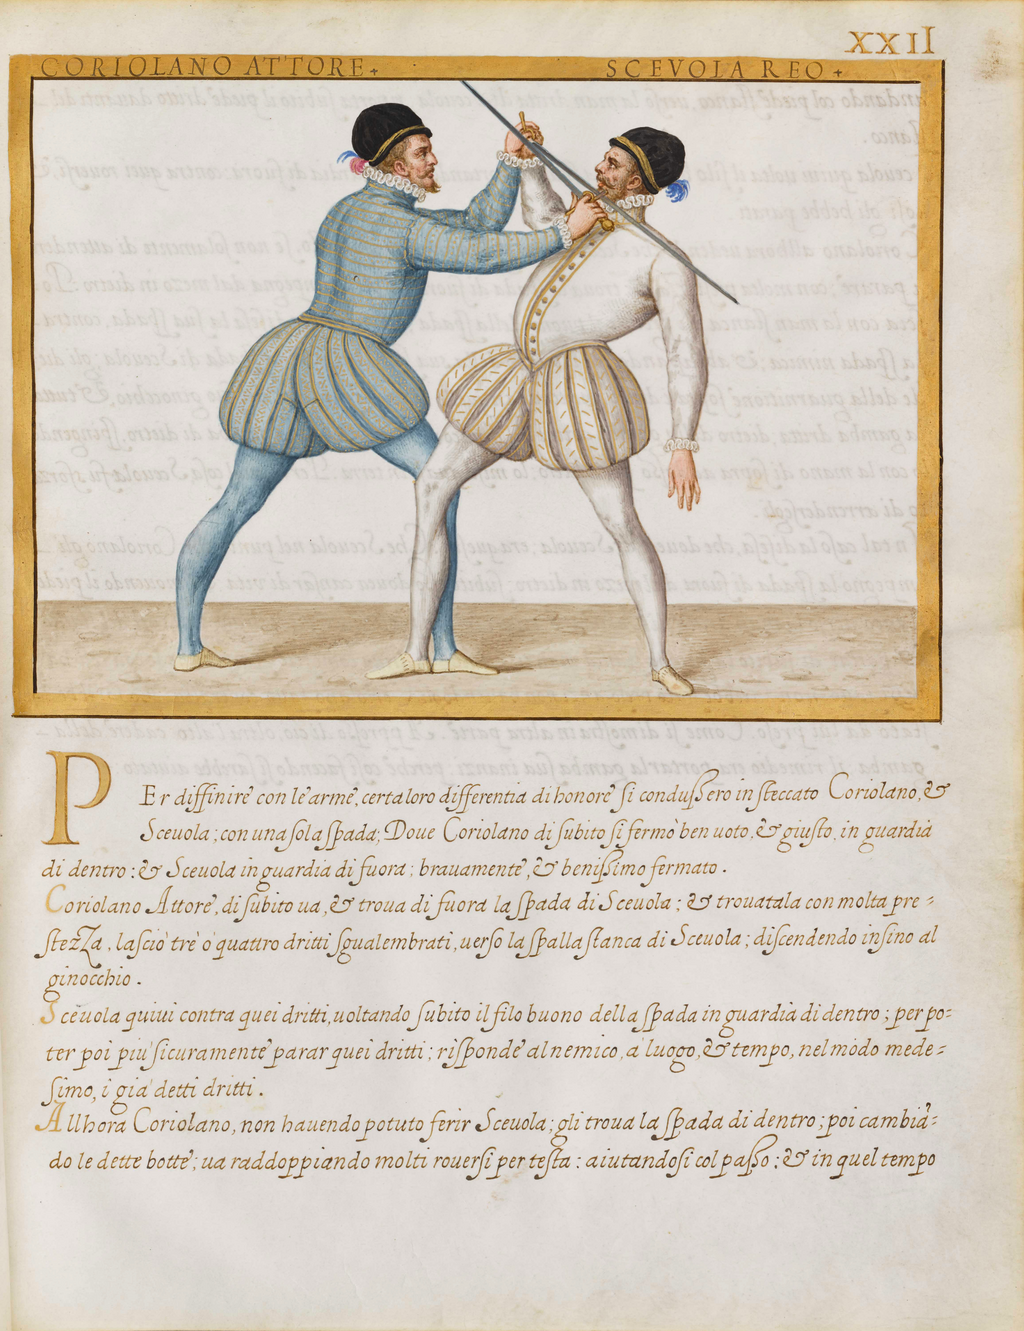 XXII
CORIOLANO ATTORE +
SCEVOLA REO +
PEr diffinire con le arme, certa loro differentia di honore si condussero in steccato Coriolano, &
Sceuola; con una sola spada; Doue Coriolano di subito si fermò ben uoto, & giusto, in guardia
di dentro: & Sceuola in guardia di fuora; brauamente, & benissimo fermato.
Coriolano Attore, di subito ua, & troua di fuora la spada di Sceuola; & trouatala con molta pre=
stezza, lasciò tre ò quattro dritti sgualembrati, uerso la spalla stanca di Sceuola; discendendo insino al
ginocchio.
Sceuola quiui contra quei dritti, uoltando subito il filo buono della spada in guardia di dentro; per po=
ter poi piu sicuramente parar quei dritti; risponde al nemico, à luogo, & tempo, nel modo mede=
simo, i già detti dritti.
Allhora Coriolano, non hauendo potuto ferir Sceuola; gli troua la spada di dentro; poi cambiā=
do le dette botte; ua raddoppiando molti rouersi per testa: aiutandosi col passo; & in quel tempo